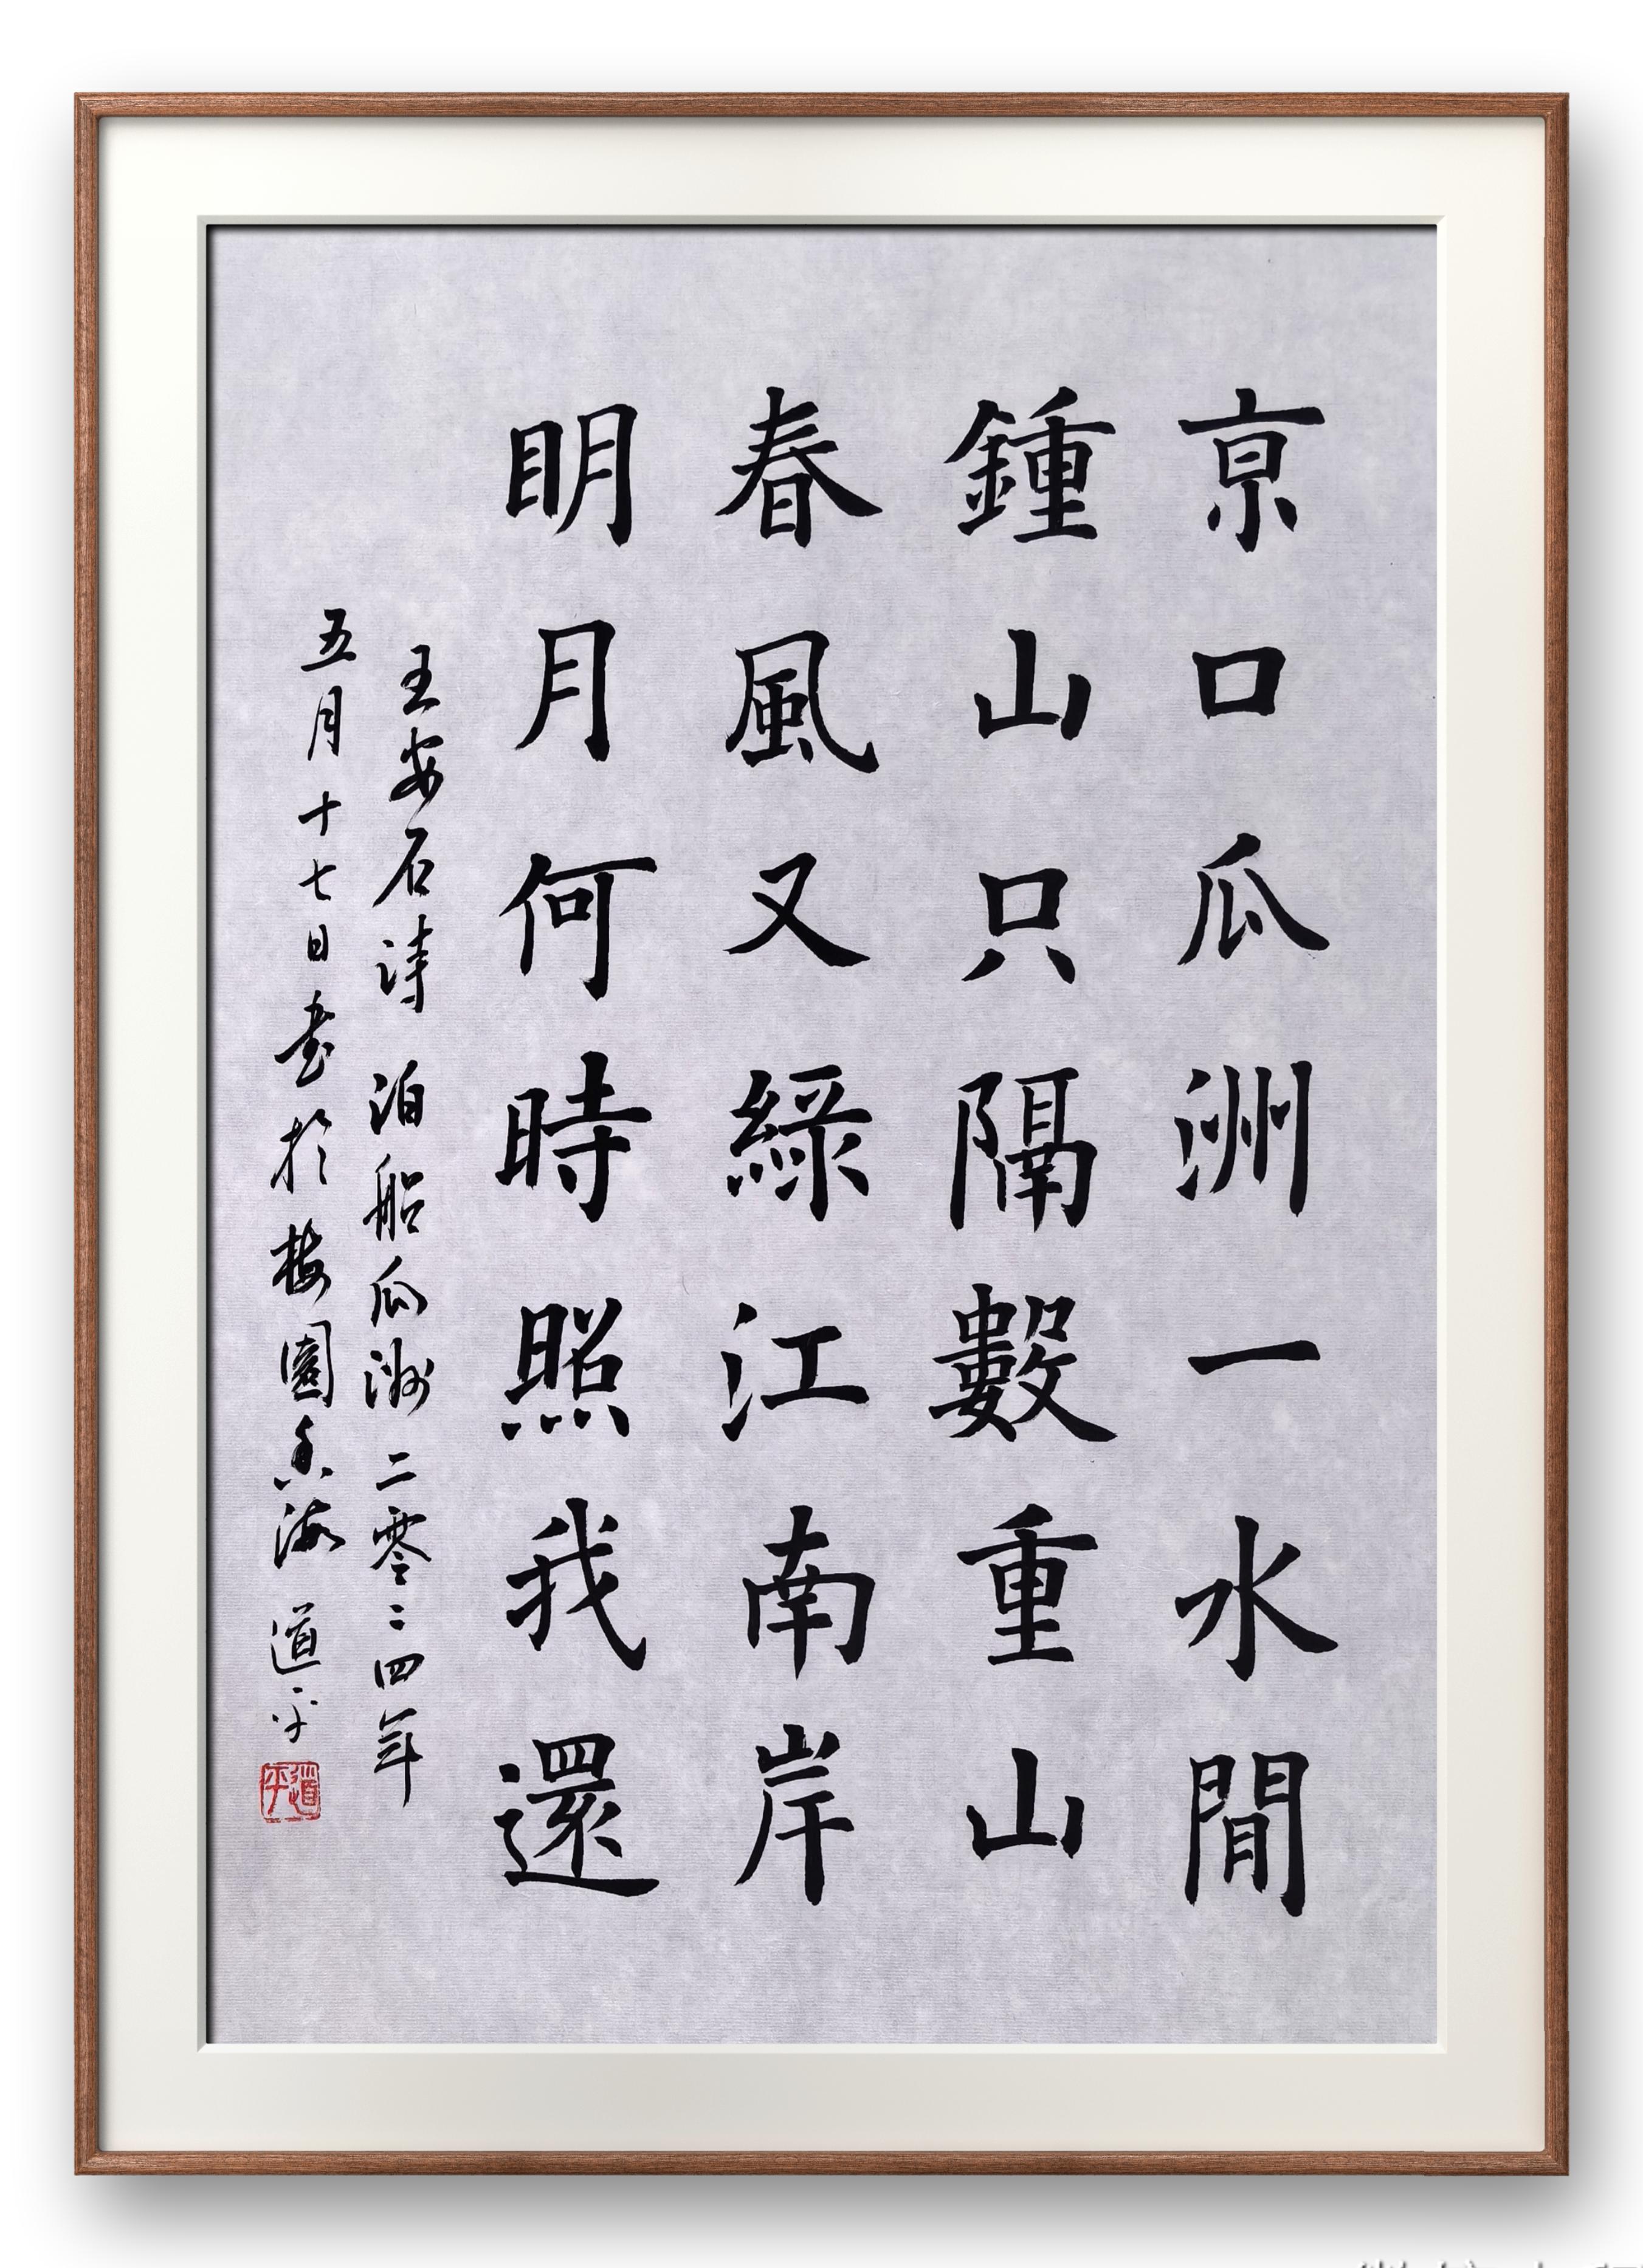 京口瓜洲一水間
鍾山只隔數重山
春風又綠江南岸
明月何時照我還
王安石詩 泊船瓜洲 二零二四年
五月十七日書於梅園香海 道平
道平